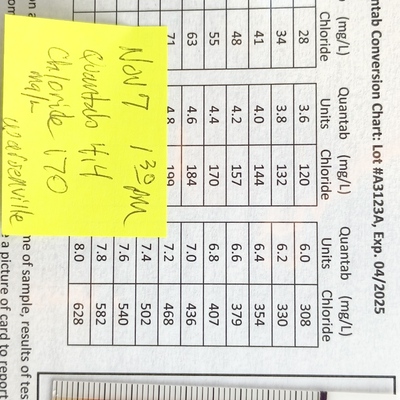 ntab Conversion Chart: Lot #A3123A, Exp. 04/2025
(mg/L) Quantab (mg/L) Quantab (mg/L)
Chloride Units Chloride Units Chloride
28 3.6 120 6.0 308
34 3.8 132 6.2 330
41 4.0 144 6.4 354
48 4.2 157 6.6 379
55 4.4 170 6.8 407
63 4.6 184 7.0 436
71 4.8 199 7.2 468
7.4 502
7.6 540
7.8 582
8.0 628
Nov 7 1 30 PM
Quantab 4.4
Chloride 170
mg/L
me of sample, results of tes
a picture of card to report